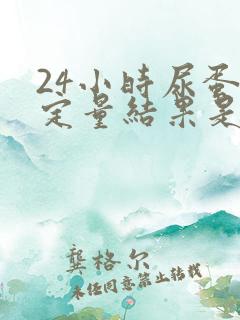 24小時尿蛋
定量結果是
龔格尔
未经同意禁止转载